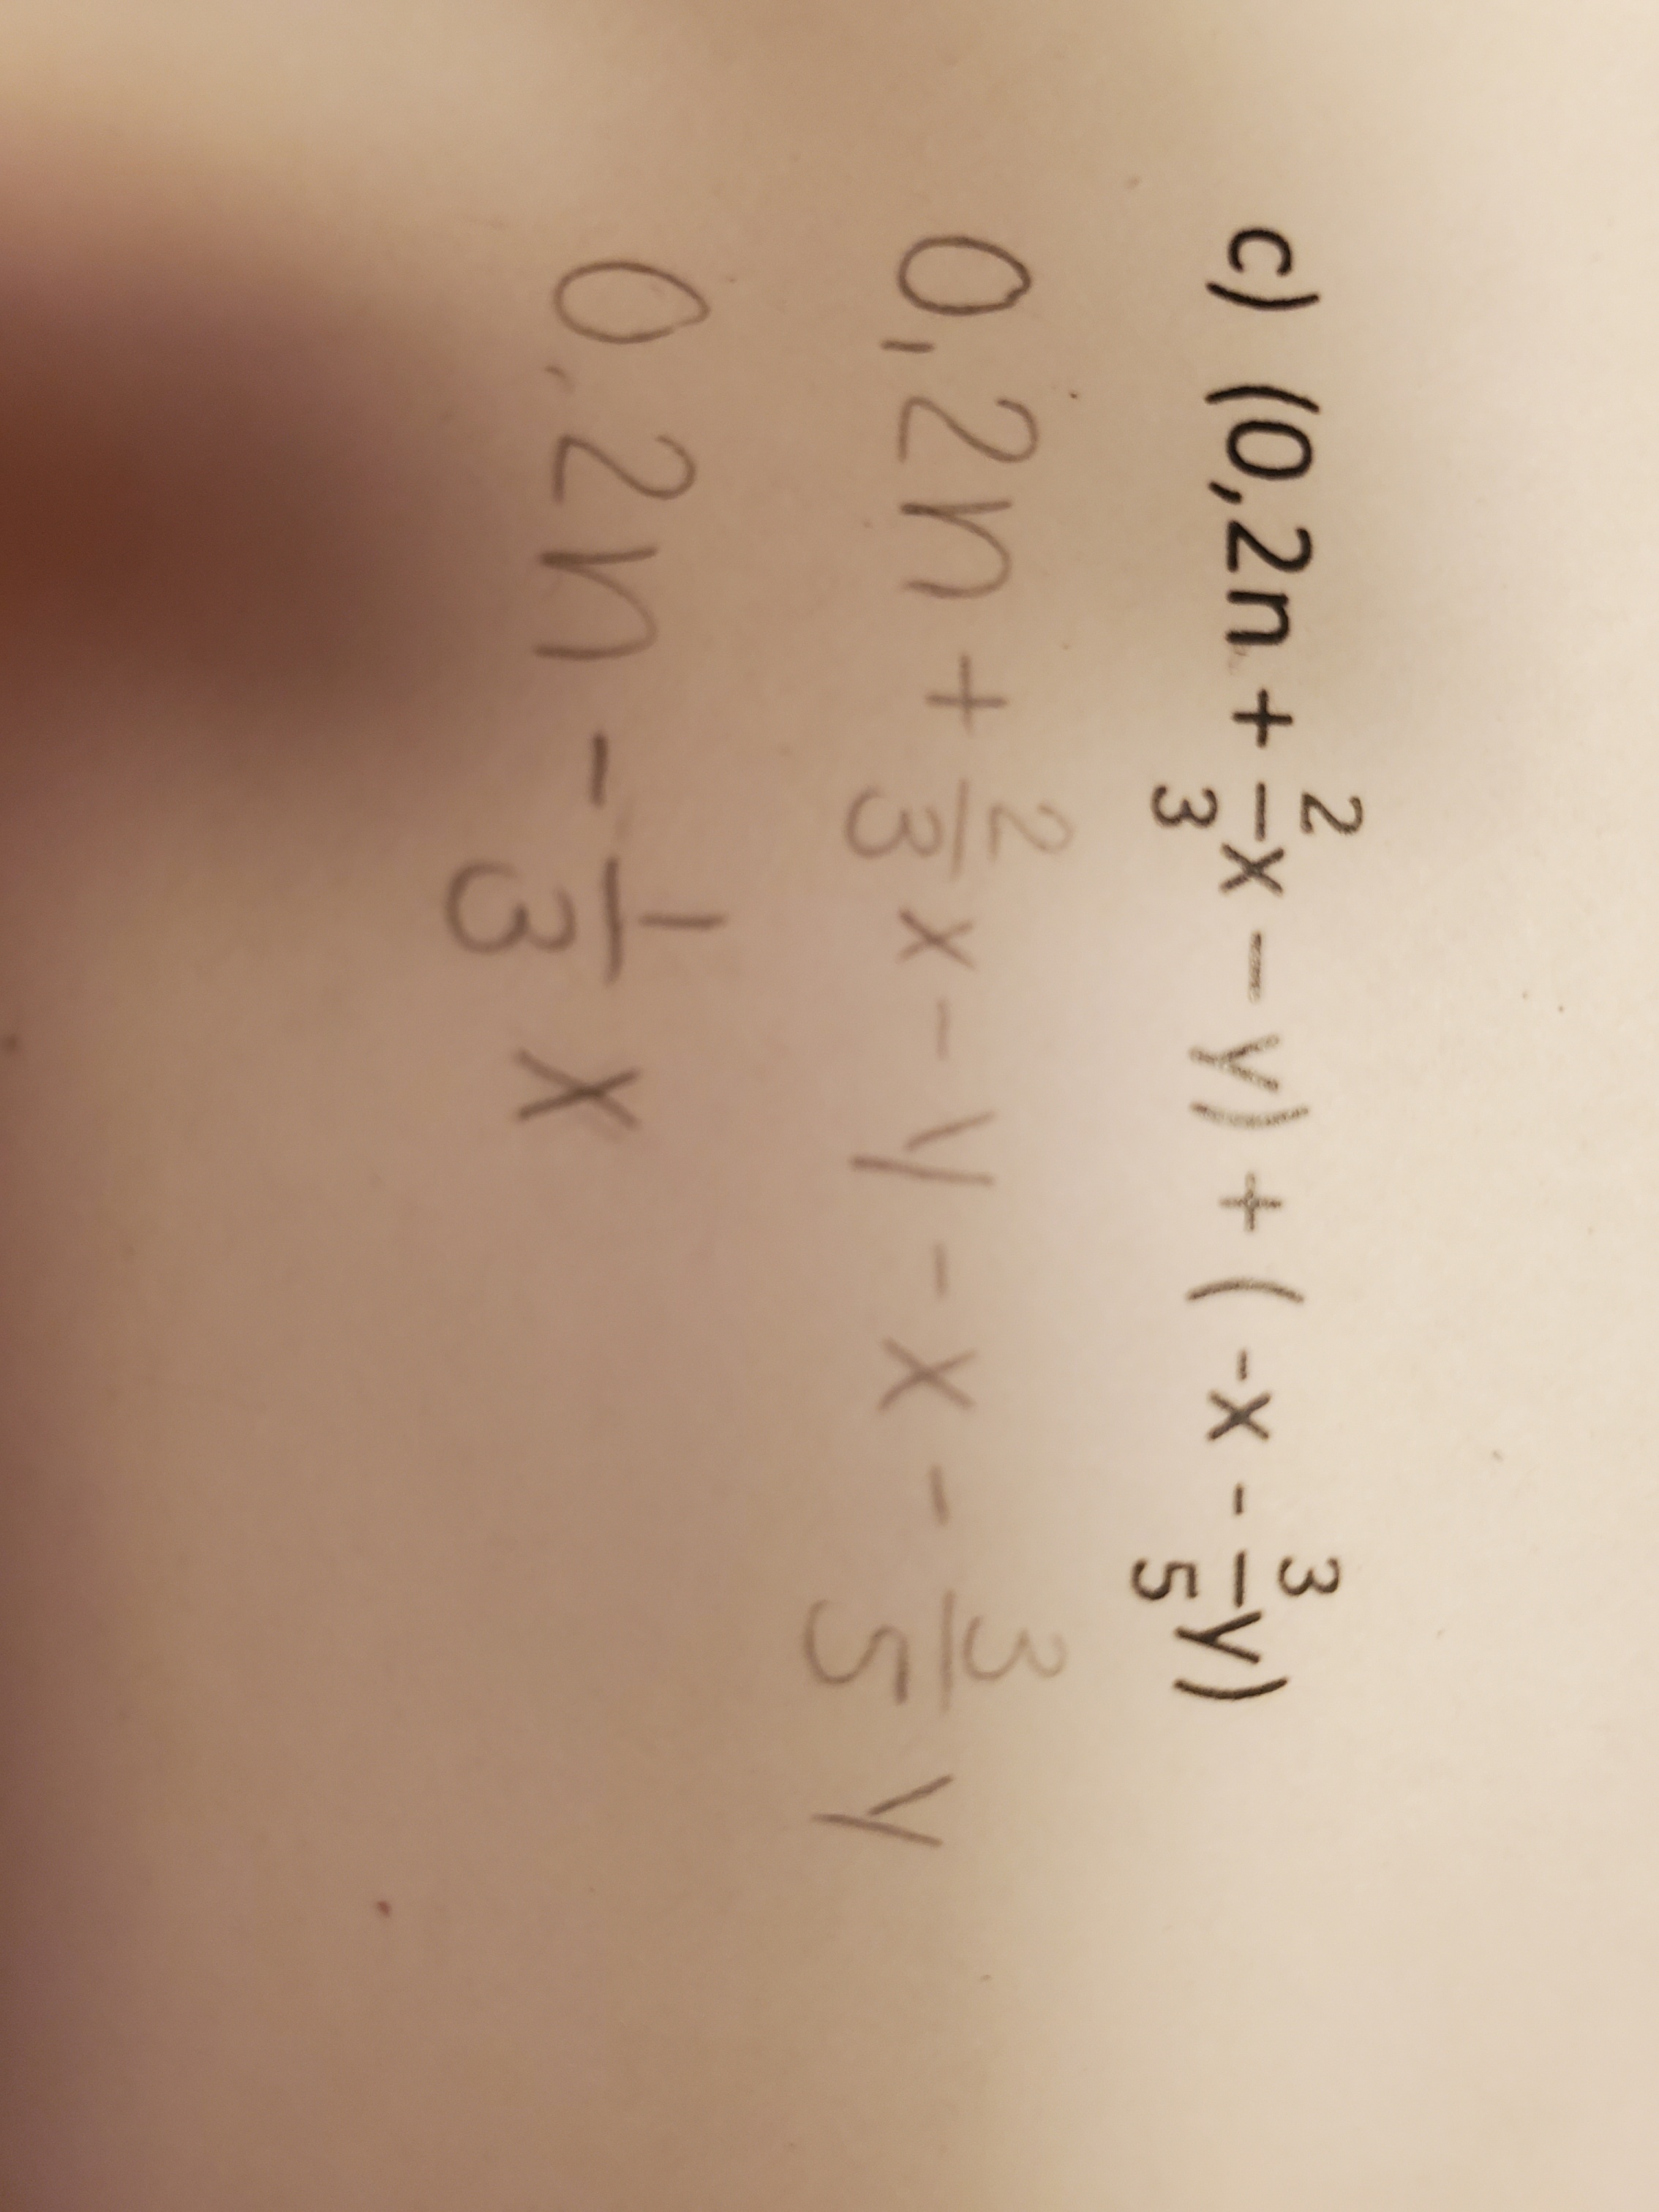 c) (0,2n + 2/3 x − y) + ( -x - 3/5 y)
0,2n + 2/3 x - y - x - 3/5 y
0,2n - 1/3 x